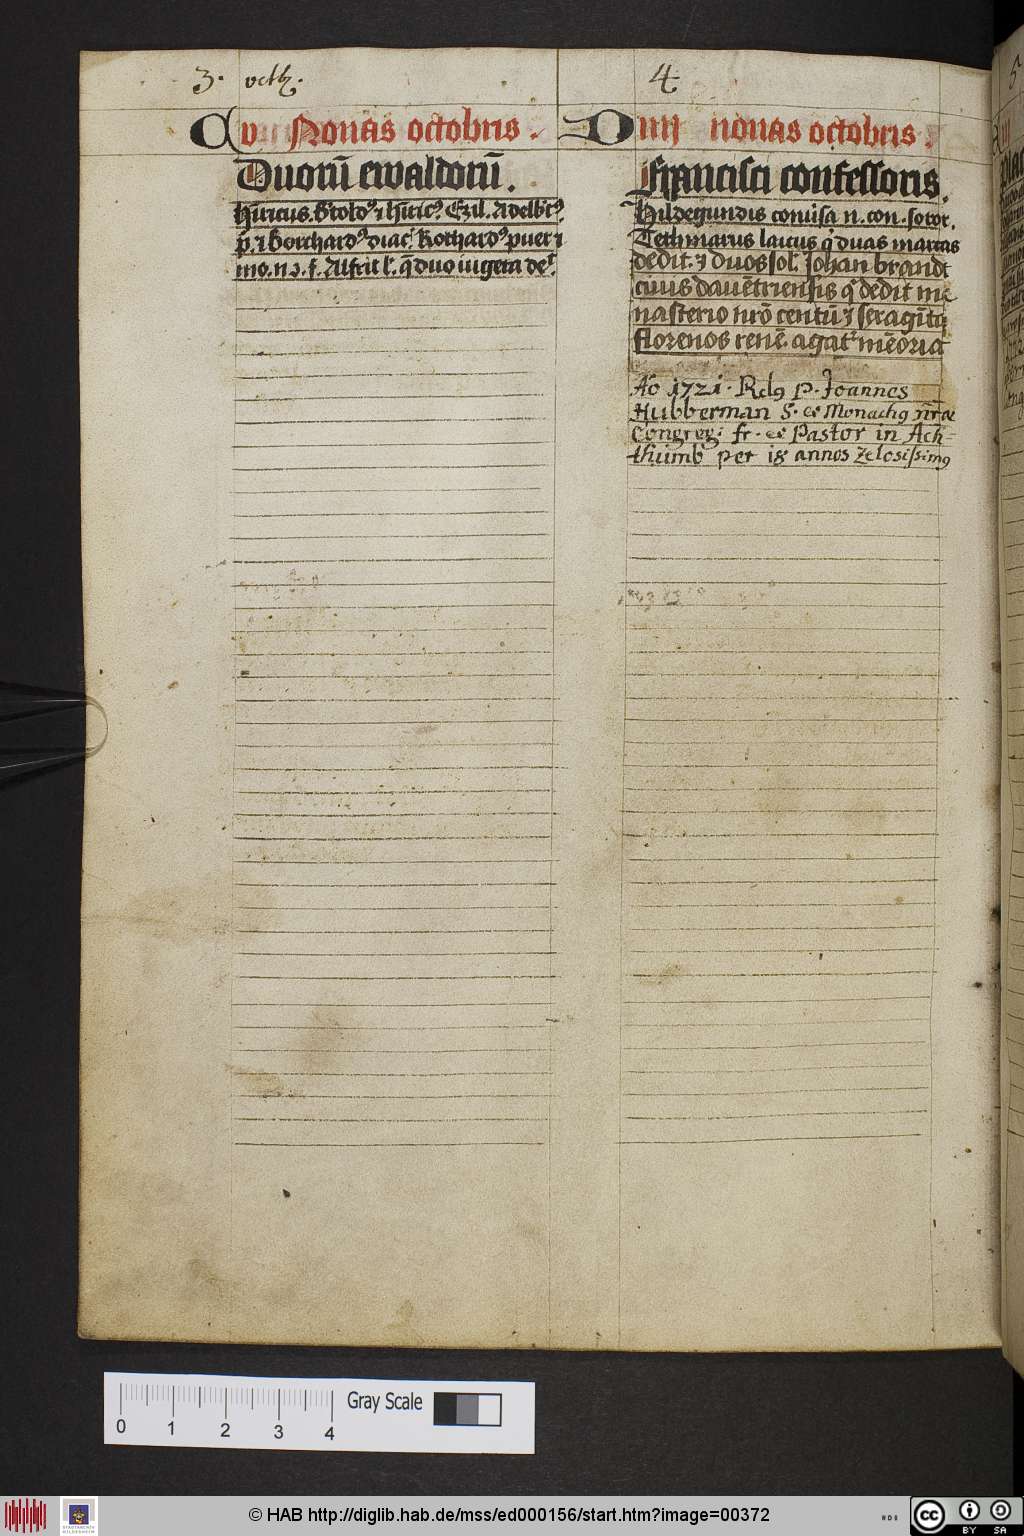 3. octb.
C v Nonas octobris.
Duorū ewaldorū.
p. ⁊ Borchardꝰ diac. Rothardꝰ puer ⁊
mo. n. ɔ. f. Alfrit l. q̄ duo iugera de.
4
D iiij nonas octobris.
Francisci confessoris.
Hildegundis conuīsa n. con. soror.
Tethmarus laicus q duas marcas
dedit. ⁊ duos sol. Johan brandt
ciuis dauētriensis q dedit mo
nasterio nrō centū ⁊ sexagīta
florenos renē. agat᷑ mēoria
Aō 1721. Rdꝰ p. Joannes
Hubberman S. et Monachꝰ nr̄ae
Congreg: fr. et Pastor in Ach=
thumb per 18 annos Zelosissimꝰ
5
0 1 2 3 4
Gray Scale
© HAB http://diglib.hab.de/mss/ed000156/start.htm?image=00372
cc BY SA